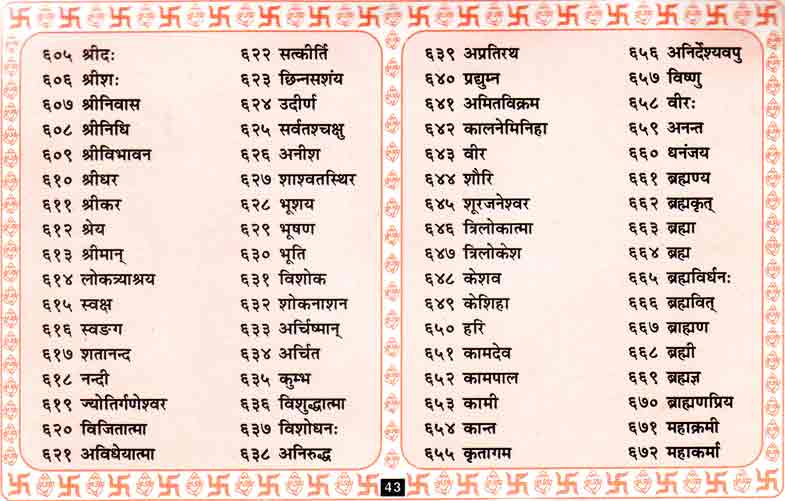 ६०५ श्रीदः
६०६ श्रीशः
६०७ श्रीनिवास
६०८ श्रीनिधि
६०९ श्रीविभावन
६१० श्रीधर
६११ श्रीकर
६१२ श्रेय
६१३ श्रीमान्
६१४ लोकत्र्याश्रय
६१५ स्वक्ष
६१६ स्वङग
६१७ शतानन्द
६१८ नन्दी
६१९ ज्योतिर्गणेश्वर
६२० विजितात्मा
६२१ अविधेयात्मा
६२२ सत्कीर्ति
६२३ छिन्नसशंय
६२४ उदीर्ण
६२५ सर्वतश्चक्षु
६२६ अनीश
६२७ शाश्वतस्थिर
६२८ भूशय
६२९ भूषण
६३० भूति
६३१ विशोक
६३२ शोकनाशन
६३३ अर्चिष्मान्
६३४ अर्चित
६३५ कुम्भ
६३६ विशुद्धात्मा
६३७ विशोधनः
६३८ अनिरुद्ध
६३९ अप्रतिरथ
६४० प्रद्युम्न
६४१ अमितविक्रम
६४२ कालनेमिनिहा
६४३ वीर
६४४ शौरि
६४५ शूरजनेश्वर
६४६ त्रिलोकात्मा
६४७ त्रिलोकेश
६४८ केशव
६४९ केशिहा
६५० हरि
६५१ कामदेव
६५२ कामपाल
६५३ कामी
६५४ कान्त
६५५ कृतागम
६५६ अनिर्देश्यवपु
६५७ विष्णु
६५८ वीरः
६५९ अनन्त
६६० धनंजय
६६१ ब्रह्मण्य
६६२ ब्रह्मकृत्
६६३ ब्रह्मा
६६४ ब्रह्म
६६५ ब्रह्मविर्धनः
६६६ ब्रह्मवित्
६६७ ब्राह्मण
६६८ ब्रह्मी
६६९ ब्रह्मज्ञ
६७० ब्राह्मणप्रिय
६७१ महाक्रमी
६७२ महाकर्मा
43